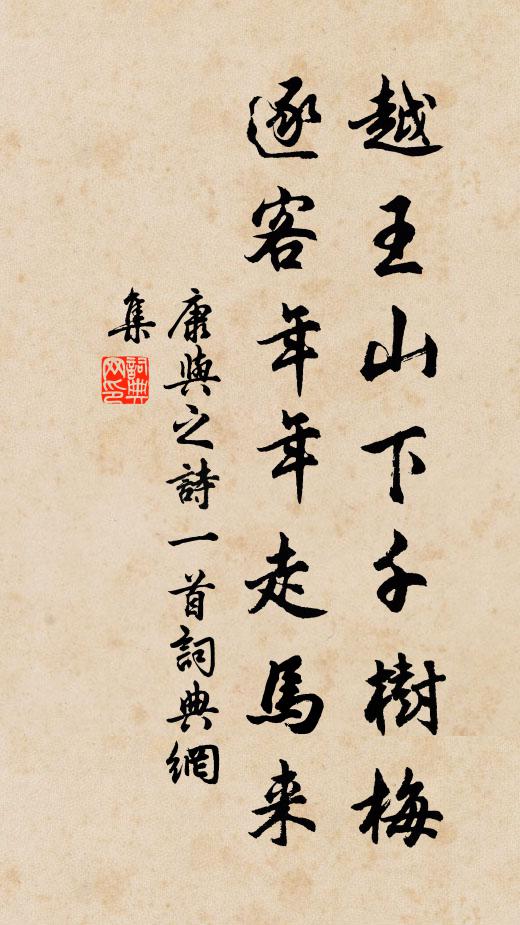 越王山下千樹梅
逐客年年走馬来
康與之詩一首詞典網
集
詞典
网印